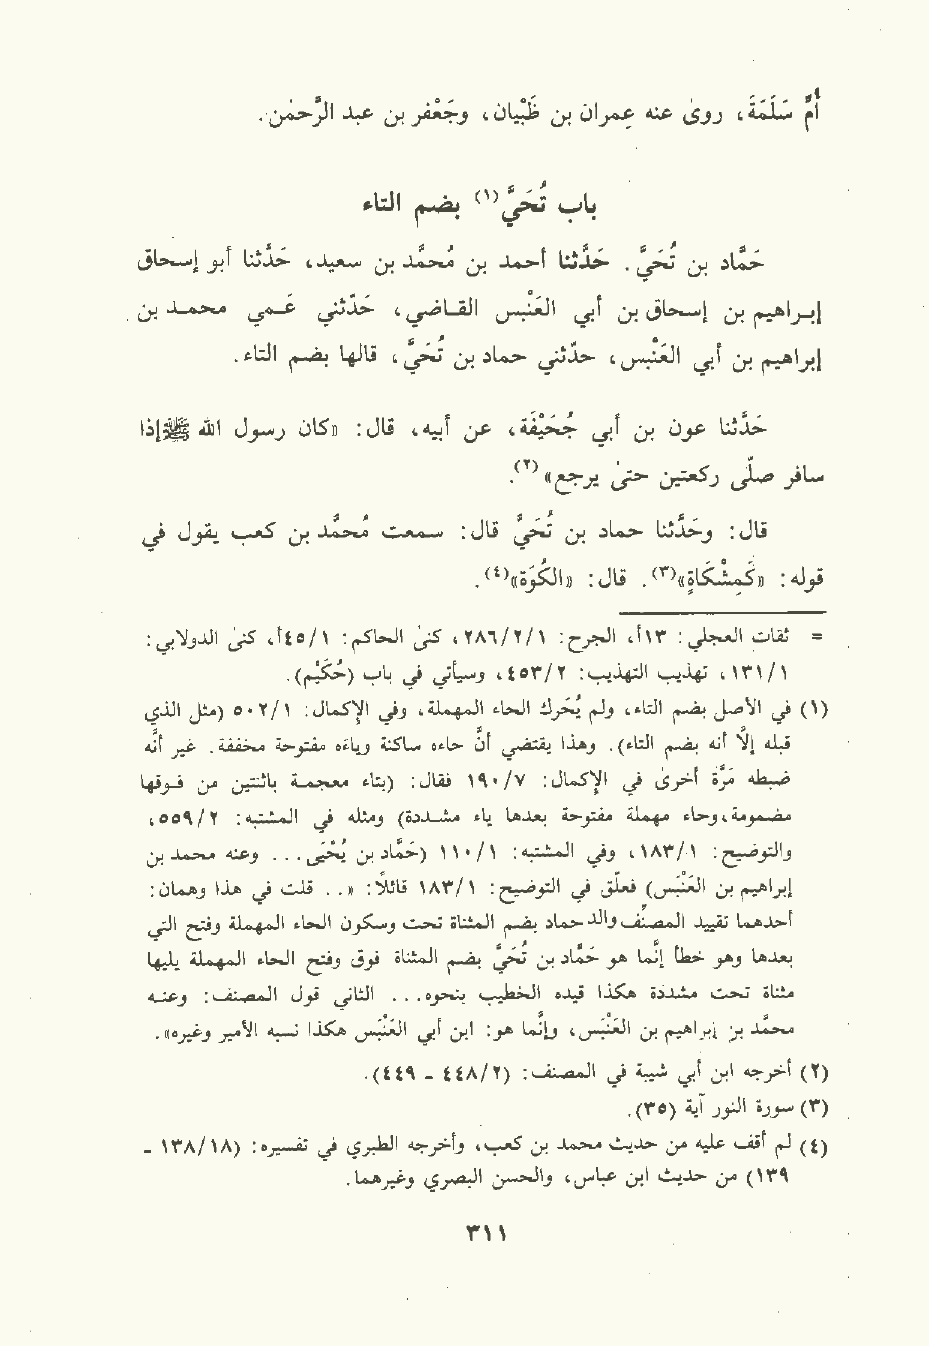 أُمِّ سَلَمَةَ، روىٰ عنه عِمران بن ظَبْيَان، وجَعْفر بن عبد الرَّحمٰن.
باب تُحَيّ(١) بضم التاء
حَمَّاد بن تُحَيّ. حَدَّثنا أحمد بن مُحمَّد بن سعيد، حَدَّثنا أبو إسحاق
إبراهيم بن إسحاق بن أبي العَنْبس القاضي، حَدَّثني عَمي محمد بن
إبراهيم بن أبي العَنْبس، حدَّثني حماد بن تُحَيّ، قالها بضم التاء.
حَدَّثنا عون بن أبي جُحَيْفَة، عن أبيه، قال: «كان رسول الله ﷺ إذا
سافر صلّى ركعتين حتىٰ يرجع»(٢).
قال: وحَدَّثنا حماد بن تُحَيّ قال: سمعت مُحمَّد بن كعب يقول في
قوله: «كَمِشْكَاةٍ»(٣). قال: «الكُوَة»(٤).
= ثقات العجلي: ١٣أ، الجرح: ١/٢/٢٨٦، كنىٰ الحاكم: ١/٤٥أ، كنىٰ الدولابي:
١/١٣١، تهذيب التهذيب: ٢/٤٥٣، وسيأتي في باب (حُكَيْم).
(١) في الأصل بضم التاء، ولم يُحَرك الحاء المهملة، وفي الإكمال: ١/٥٠٢ (مثل الذي
قبله إلّا أنه بضم التاء). وهذا يقتضي أنّ حاءه ساكنة وياءه مفتوحة مخففة. غير أنّه
ضبطه مَرَّة أخرى في الإكمال: ٧/١٩٠ فقال: (بتاء معجمة باثنتين من فوقها
مضمومة، وحاء مهملة مفتوحة بعدها ياء مشددة) ومثله في المشتبه: ٢/٥٥٩،
والتوضيح: ١/١٨٣، وفي المشتبه: ١/١١٠ (حَمَّاد بن يُحْيَى... وعنه محمد بن
إبراهيم بن العَنْبَس) فعلّق في التوضيح: ١/١٨٣ قائلاً: «.. قلت في هذا وهمان:
أحدهما تقييد المصنف والد حماد بضم المثناة تحت وسكون الحاء المهملة وفتح التي
بعدها وهو خطأ إنّما هو حَمَّاد بن تُحَيّ بضم المثناة فوق وفتح الحاء المهملة يليها
مثناة تحت مشددة هكذا قيده الخطيب بنحوه... الثاني قول المصنف: وعنه
محمَّد بن إبراهيم بن العَنْبَس، وإنَّما هو: ابن أبي العَنْبَس هكذا نسبه الأمير وغيره».
(٢) أخرجه ابن أبي شيبة في المصنف: (٢/٤٤٨ - ٤٤٩).
(٣) سورة النور آية (٣٥).
(٤) لم أقف عليه من حديث محمد بن كعب، وأخرجه الطبري في تفسيره: (١٨/١٣٨ -
١٣٩) من حديث ابن عباس، والحسن البصري وغيرهما.
٣١١